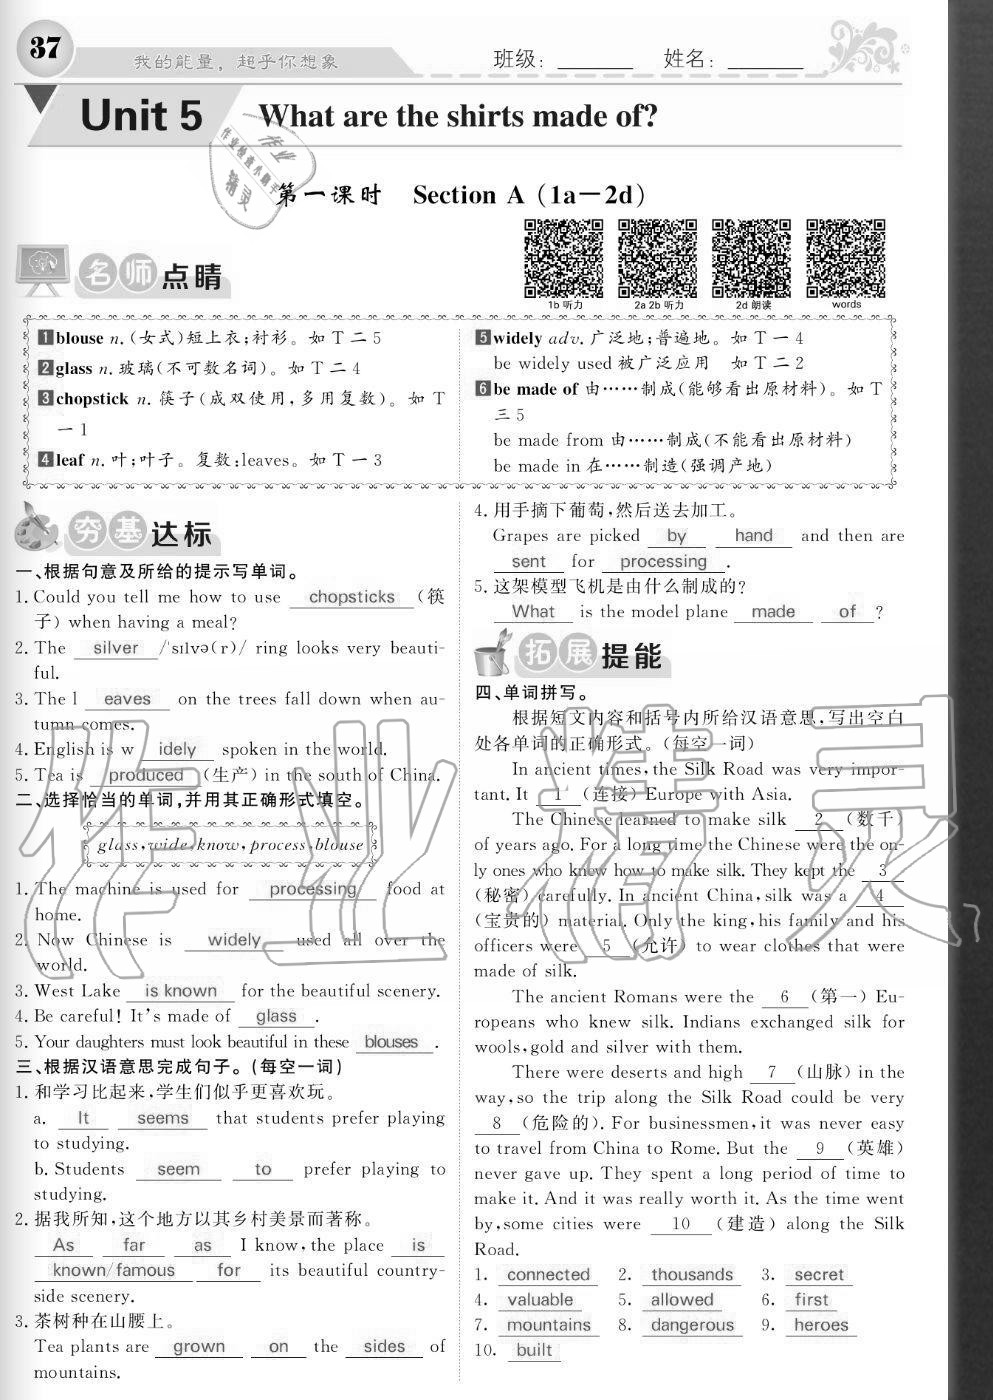 37
我的能量，超乎你想象
班级：
姓名：
Unit 5 What are the shirts made of?
第一课时 Section A (1a—2d)
1b 听力 2a 2b 听力 2d 朗读 words
名师点睛
1 blouse n. (女式)短上衣;衬衫。如 T 二 5
2 glass n. 玻璃(不可数名词)。如 T 二 4
3 chopstick n. 筷子(成双使用,多用复数)。如 T
一 1
4 leaf n. 叶;叶子。复数:leaves。如 T 一 3
5 widely adv. 广泛地;普遍地。如 T 一 4
be widely used 被广泛应用 如 T 二 2
6 be made of 由……制成(能够看出原材料)。如 T
三 5
be made from 由……制成(不能看出原材料)
be made in 在……制造(强调产地)
夯基达标
一、根据句意及所给的提示写单词。
1. Could you tell me how to use chopsticks (筷
子) when having a meal?
2. The silver /ˈsɪlvə(r)/ ring looks very beauti-
ful.
3. The l eaves on the trees fall down when au-
tumn comes.
4. English is w idely spoken in the world.
5. Tea is produced (生产) in the south of China.
二、选择恰当的单词,并用其正确形式填空。
glass, wide, know, process, blouse
1. The machine is used for processing food at
home.
2. Now Chinese is widely used all over the
world.
3. West Lake is known for the beautiful scenery.
4. Be careful! It's made of glass .
5. Your daughters must look beautiful in these blouses .
三、根据汉语意思完成句子。(每空一词)
1. 和学习比起来,学生们似乎更喜欢玩。
a. It seems that students prefer playing
to studying.
b. Students seem to prefer playing to
studying.
2. 据我所知,这个地方以其乡村美景而著称。
As far as I know, the place is
known/famous for its beautiful country-
side scenery.
3. 茶树种在山腰上。
Tea plants are grown on the sides of
mountains.
4. 用手摘下葡萄,然后送去加工。
Grapes are picked by hand and then are
sent for processing .
5. 这架模型飞机是由什么制成的?
What is the model plane made of ?
拓展提能
四、单词拼写。
根据短文内容和括号内所给汉语意思,写出空白
处各单词的正确形式。(每空一词)
In ancient times, the Silk Road was very impor-
tant. It 1 (连接) Europe with Asia.
The Chinese learned to make silk 2 (数千)
of years ago. For a long time the Chinese were the on-
ly ones who knew how to make silk. They kept the 3
(秘密) carefully. In ancient China, silk was a 4
(宝贵的) material. Only the king, his family and his
officers were 5 (允许) to wear clothes that were
made of silk.
The ancient Romans were the 6 (第一) Eu-
ropeans who knew silk. Indians exchanged silk for
wools, gold and silver with them.
There were deserts and high 7 (山脉) in the
way, so the trip along the Silk Road could be very
8 (危险的). For businessmen, it was never easy
to travel from China to Rome. But the 9 (英雄)
never gave up. They spent a long period of time to
make it. And it was really worth it. As the time went
by, some cities were 10 (建造) along the Silk
Road.
1. connected 2. thousands 3. secret
4. valuable 5. allowed 6. first
7. mountains 8. dangerous 9. heroes
10. built
作业精灵
作业
作业检查小助手
精灵